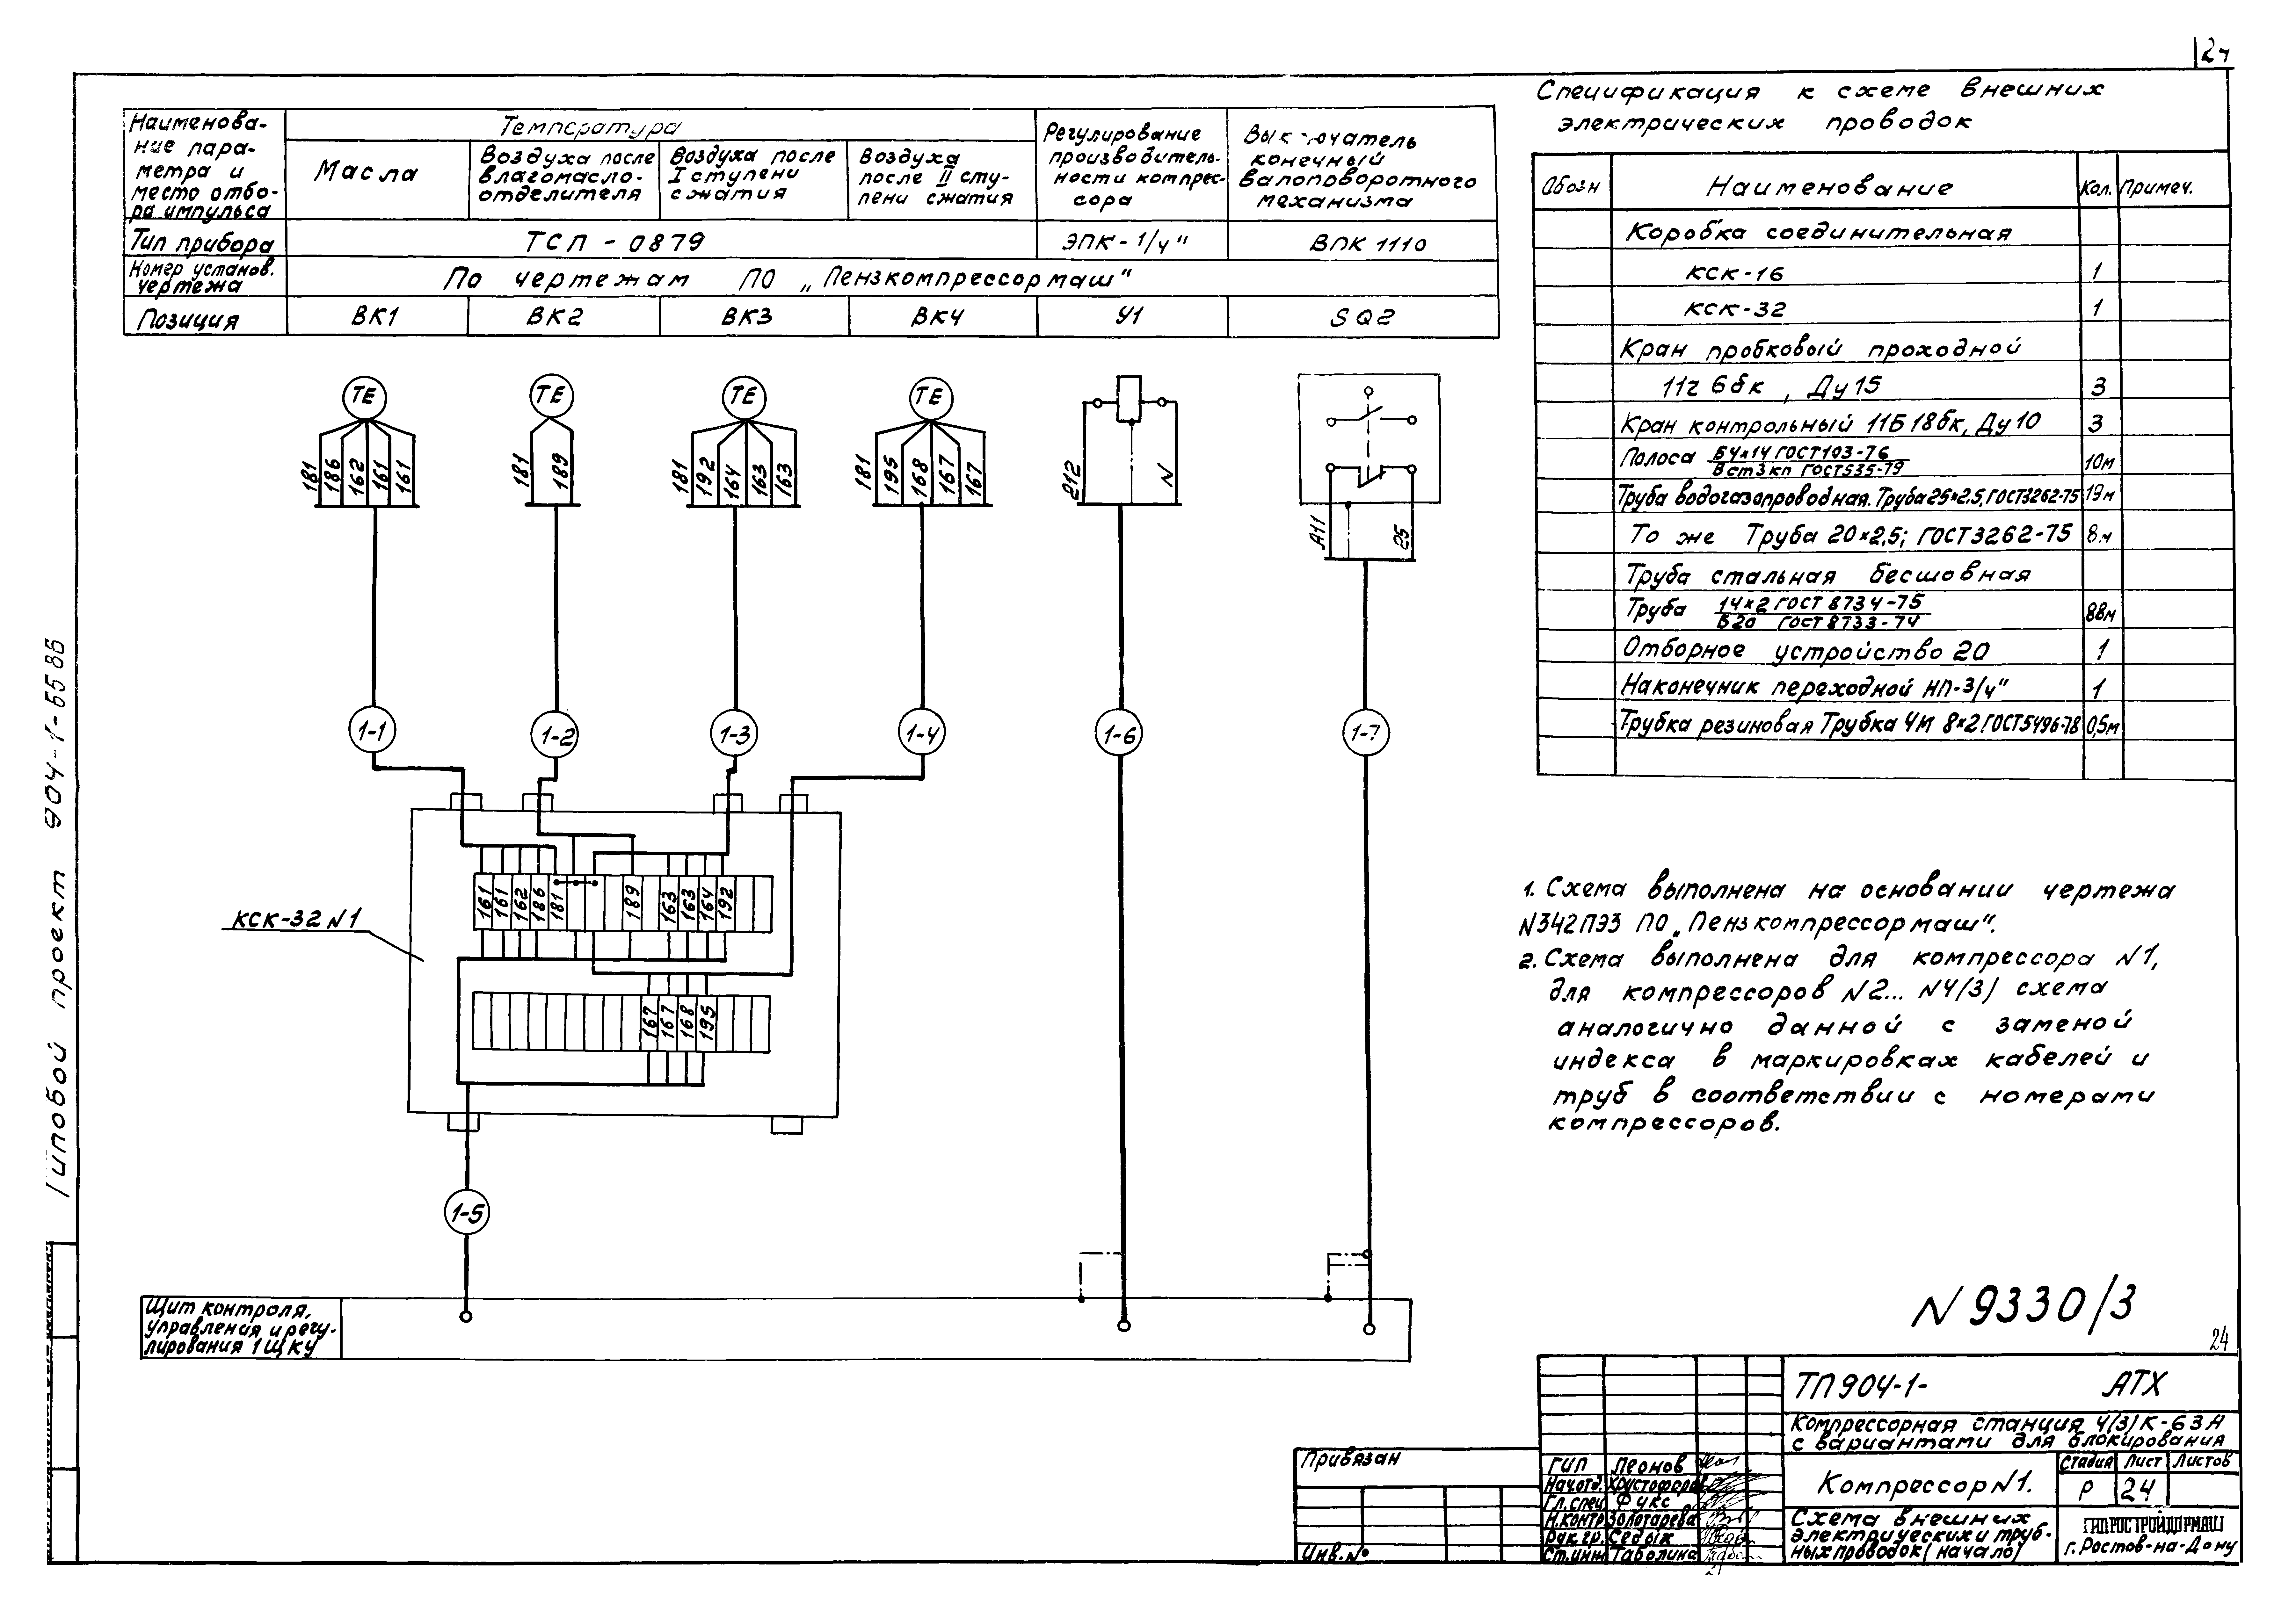 24
Наименова-
ние пара-
метра и
место отбо-
ра импульса
Температура
Масла
Воздуха после
влагомасло-
отделителя
Воздуха после
I ступени
сжатия
Воздуха
после II сту-
пени сжатия
Регулирование
производитель-
ности компрес-
сора
Выключатель
конечный
валоповоротного
механизма
Тип прибора
ТСП-0879
ЭПК-1/4"
ВПК 1110
Номер установ.
чертежа
По чертежам ПО „Пензкомпрессормаш"
Позиция
ВК1
ВК2
ВК3
ВК4
У1
SQ2
ТЕ
ТЕ
ТЕ
ТЕ
181
186
162
161
161
181
189
181
192
164
163
163
181
195
168
167
167
212
N
А11
25
1-1
1-2
1-3
1-4
1-6
1-7
КСК-32 N1
161
161
162
186
181
189
163
163
164
192
167
167
168
195
1-5
Щит контроля,
управления и регу-
лирования 1ЩКУ
Спецификация к схеме внешних
электрических проводок
Обозн
Наименование
Кол.
Примеч.
Коробка соединительная
КСК-16 1
КСК-32 1
Кран пробковый проходной
11ч 6бк, Ду15 3
Кран контрольный 11Б18бк, Ду10 3
Полоса Б4х14 ГОСТ103-76
Вст3кп ГОСТ535-79
10м
Труба водогазопроводная. Труба25х2.5, ГОСТ3262-75 19м
То же Труба 20х2,5; ГОСТ3262-75 8м
Труба стальная бесшовная
Труба 14х2 ГОСТ 8734-75
В20 ГОСТ8733-74
88м
Отборное устройство 20 1
Наконечник переходной НП-3/4" 1
Трубка резиновая Трубка 4М 8х2 ГОСТ5496-78 0,5м
1. Схема выполнена на основании чертежа
N342ПЭ3 ПО „Пензкомпрессормаш".
2. Схема выполнена для компрессора N1,
для компрессоров N2... N4(3) схема
аналогично данной с заменой
индекса в маркировках кабелей и
труб в соответствии с номерами
компрессоров.
N 9330/3
24
ТП904-1- АТХ
Компрессорная станция 4(3)К-63А
с вариантами для блокирования
Компрессор N1.
Стадия Лист Листов
Р 24
Схема внешних
электрических и труб-
ных проводок (начало)
ГИПРОСТРОЙДОРМАШ
г. Ростов-на-Дону
Привязан
Инв. №
ГИП Леонов
Нач.отд. Христофоров
Гл.спец. Фукс
Н.контр Золотарева
Рук.гр. Седых
Ст.инж Таболина
21
Типовой проект 904-1-55 86